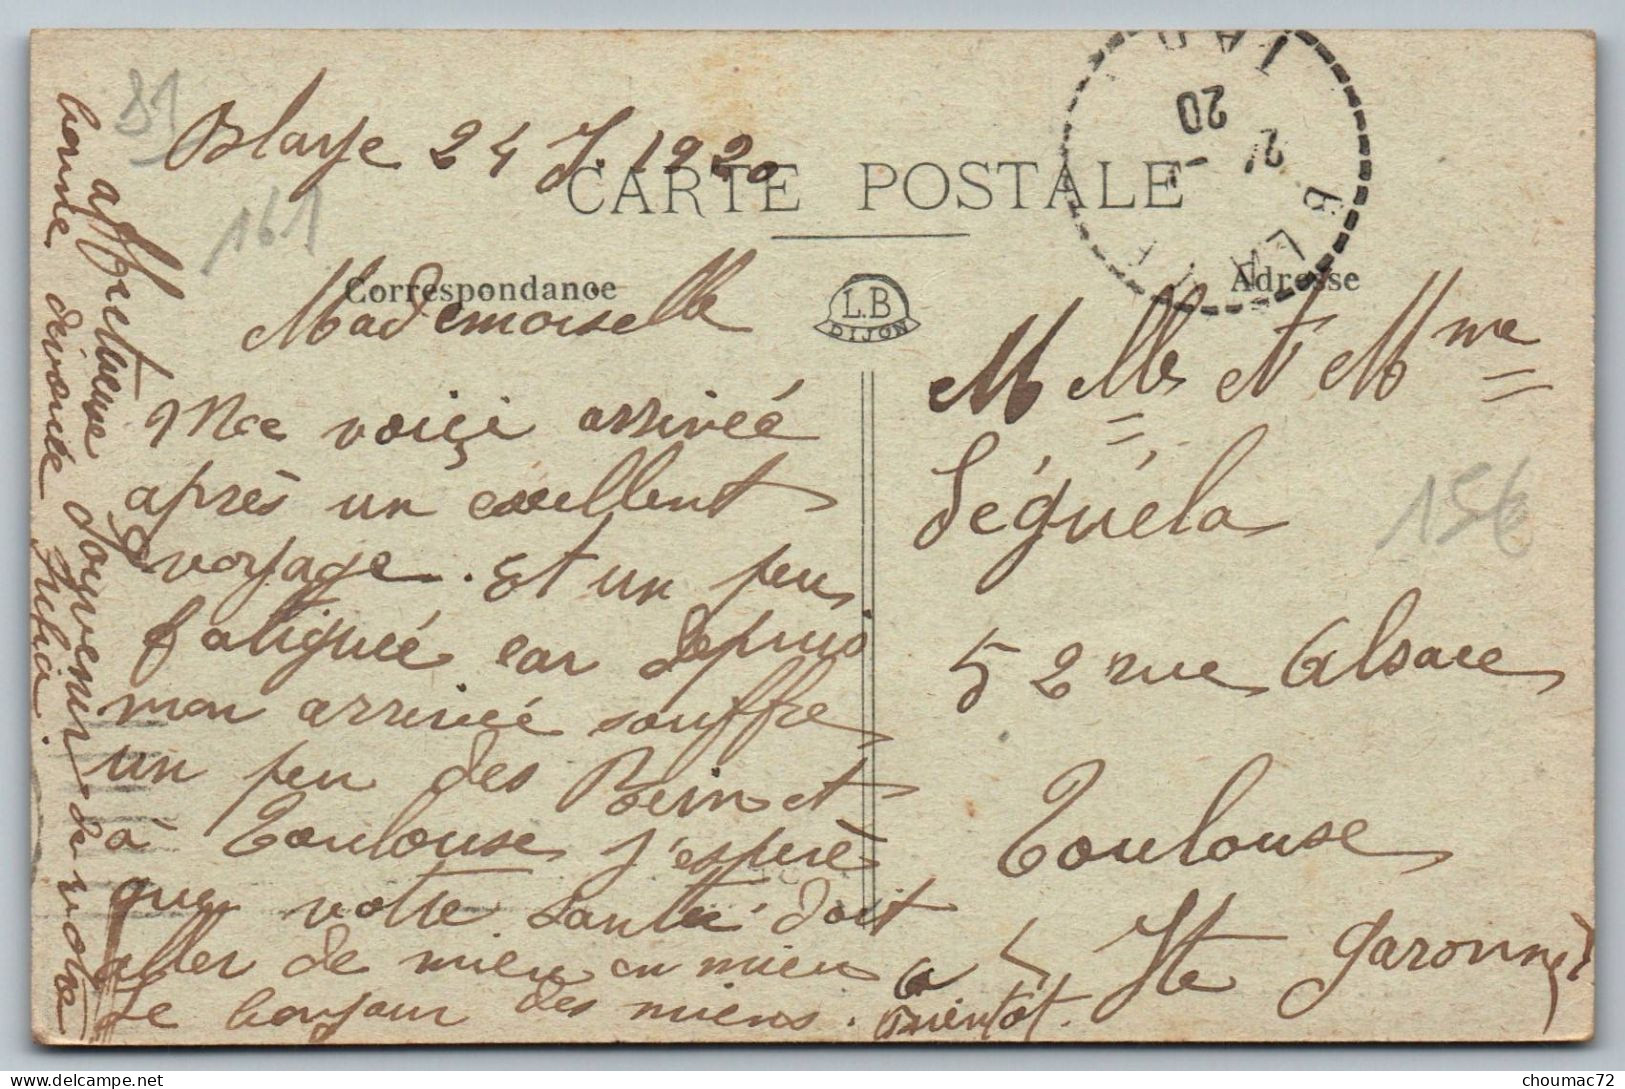 81
161
Blaye 24 J. 1920
CARTE POSTALE
20
BLAYE
Correspondance
L.B
DIJON
Adresse
Mademoiselle
Mee voiçi arrivée
après un exellent
voyage. Et un peu
fatiguée car depuis
mon arrivée souffre
un peu des Rein et
à Toulouse j'espère
que votre santé doit
aller de mieu en mieu
Le bonjour des miens. a
Bientôt.
affectueuse souvenir de votre
bonne dévouée Julia.
Melle et Mme
Séguéla
52 rue Alsace
Toulouse
Hte Garonne
15€
CHOUMAC72